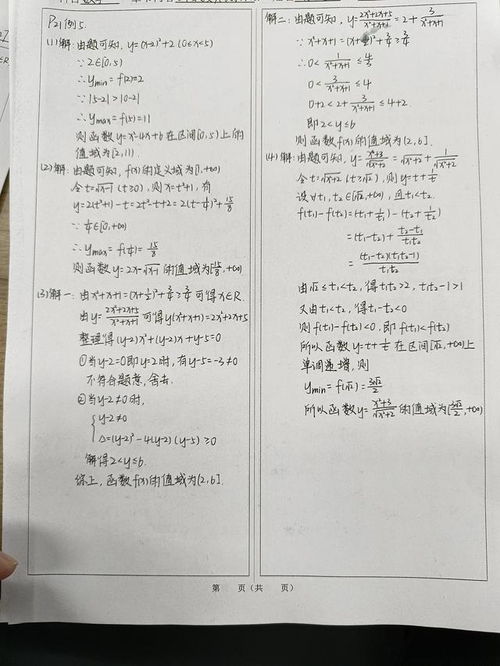 P21例5.
(1)解:由题可知, y=(x-2)²+2 (0≤x<5)
∵ 2∈[0,5)
∴ymin = f(2)=2
∵ |5-2|>|0-2|
∴ymax = f(5)=11
则函数y=x²-4x+6在区间[0,5)上的
值域为[2,11).
(2)解: 由题可知, f(x)的定义域为[1,+∞)
令t=√x-1 (t≥0), 则x=t²+1, 有
y=2(t²+1)-t=2t²-t+2=2(t-1/4)²+15/8
∵ 1/4∈[0,+∞)
∴ymax=f(1/4)=15/8
则函数y=2x-√x-1的值域为[15/8,+∞)
(3)解一: 由x²+x+1=(x+1/2)²+3/4≥3/4可得x∈R.
由y=2x²+2x+5/x²+x+1可得y(x²+x+1)=2x²+2x+5
整理得(y-2)x²+(y-2)x+y-5=0
①当y-2=0即y=2时, 有y-5=-3≠0
不符合题意, 舍去.
②当y-2≠0时,
{ y-2≠0
Δ=(y-2)²-4(y-2)(y-5)≥0
解得2<y≤6.
综上, 函数f(x)的值域为(2,6].
解二: 由题可知, y=2x²+2x+5/x²+x+1=2+3/x²+x+1
∵ x²+x+1=(x+1/2)²+3/4≥3/4
∴0<1/x²+x+1≤4/3
0<3/x²+x+1≤4
0+2<2+3/x²+x+1≤4+2
即2<y≤6
则函数f(x)的值域为(2,6].
(4)解:由题可知, y=x²+3/√x²+2=√x²+2+1/√x²+2
令t=√x²+2 (t≥√2), 则y=t+1/t
设∀t₁,t₂∈[√2,+∞), 且t₁<t₂.
f(t₁)-f(t₂)=(t₁+1/t₁)-(t₂+1/t₂)
=(t₁-t₂)+t₂-t₁/t₁t₂
=(t₁-t₂)(t₁t₂-1)/t₁t₂
由√2≤t₁<t₂, 得t₁t₂>2, t₁t₂-1>1
又由t₁<t₂, 得t₁-t₂<0
则f(t₁)-f(t₂)<0, 即f(t₁)<f(t₂)
所以函数y=t+1/t在区间[√2,+∞)上
单调递增, 则
ymin=f(√2)=3√2/2
所以函数y=x²+3/√x²+2的值域为[3√2/2,+∞)
第 页(共 页)